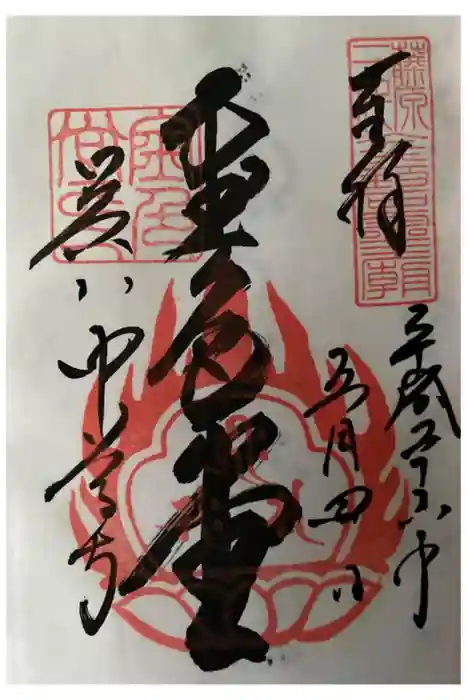 奉拝
平成二十六年
五月四日
金色堂
関山 中尊寺